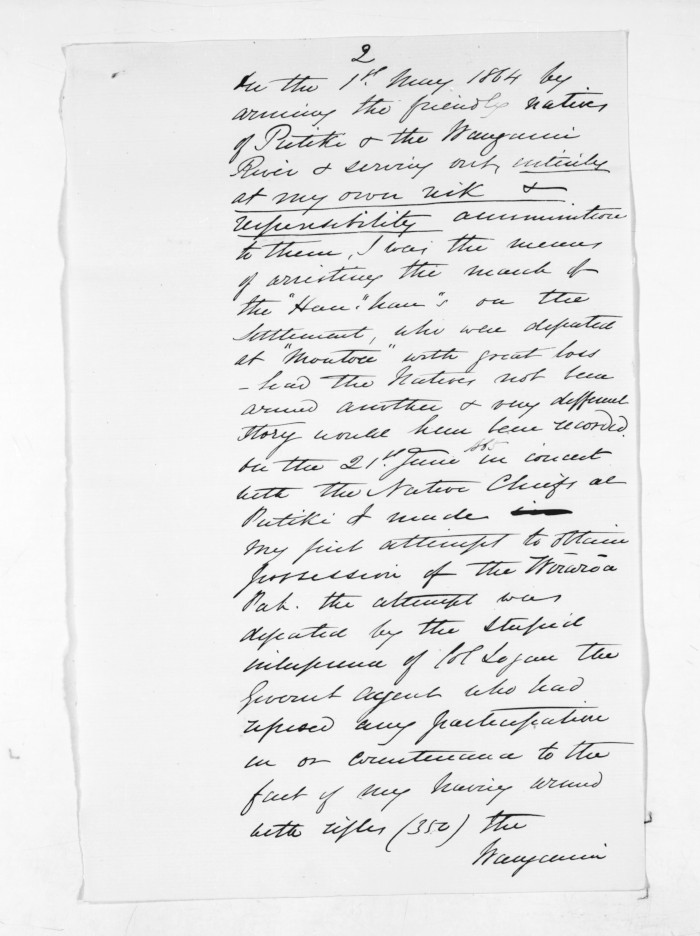 2
On the 1st May 1864 by
arming the friendly natives
of Putiki & the Wanganui
River & serving out, entirely
at my own risk &
responsibility ammunition
to them, I was the means
of arresting the march of
the "Hau "hau"s on the
Settlement, who were defeated
at "Moutoa" with great loss
- had the Natives not been
armed another & very different
story would have been recorded.
On the 21st June 1865 in concert
with the Native Chiefs at
Putiki I made
my first attempt to obtain
possession of the Weraroa
Pah. the attempt was
defeated by the stupid
interference of Col Logan the
Govermt agent who had
refused any participation
in or countenance to the
fact of my having armed
with rifles (350) the
Wanganui